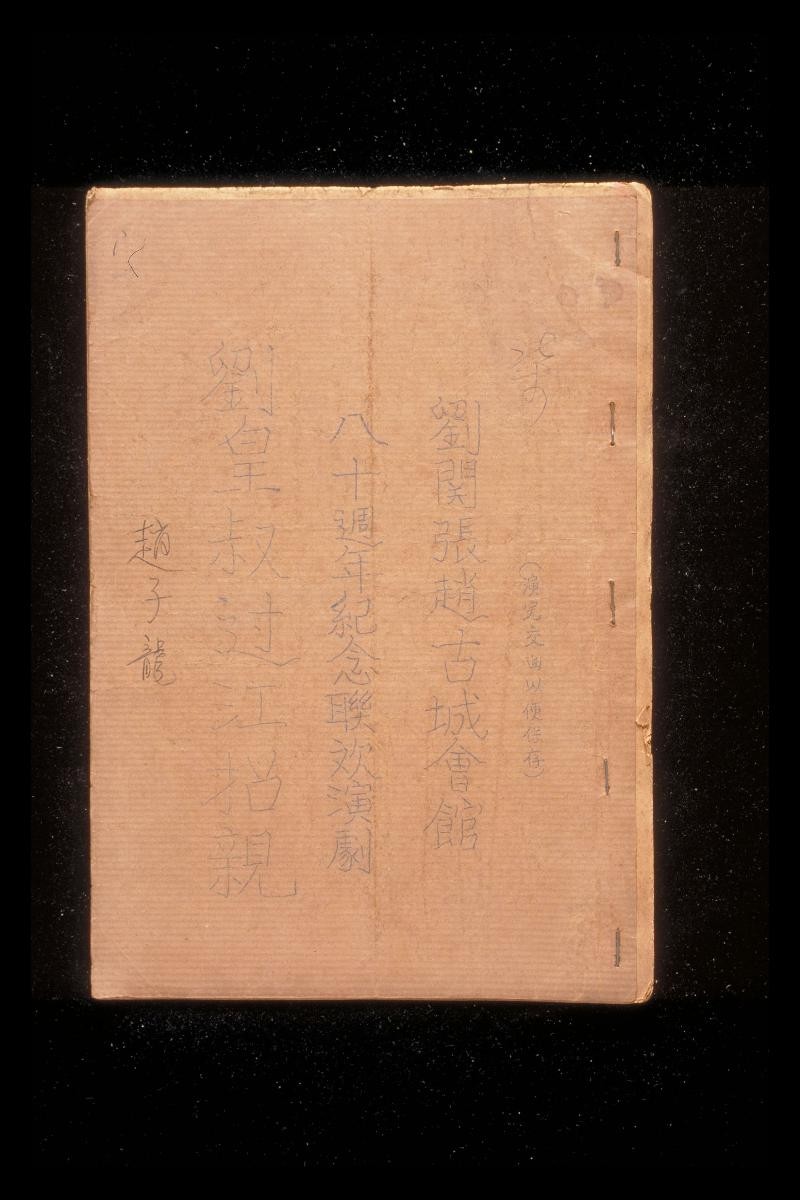 (演完交回以便保存)
劉関張趙古城會館
八十週年紀念聯欢演劇
劉皇叔过江招親
趙子龍